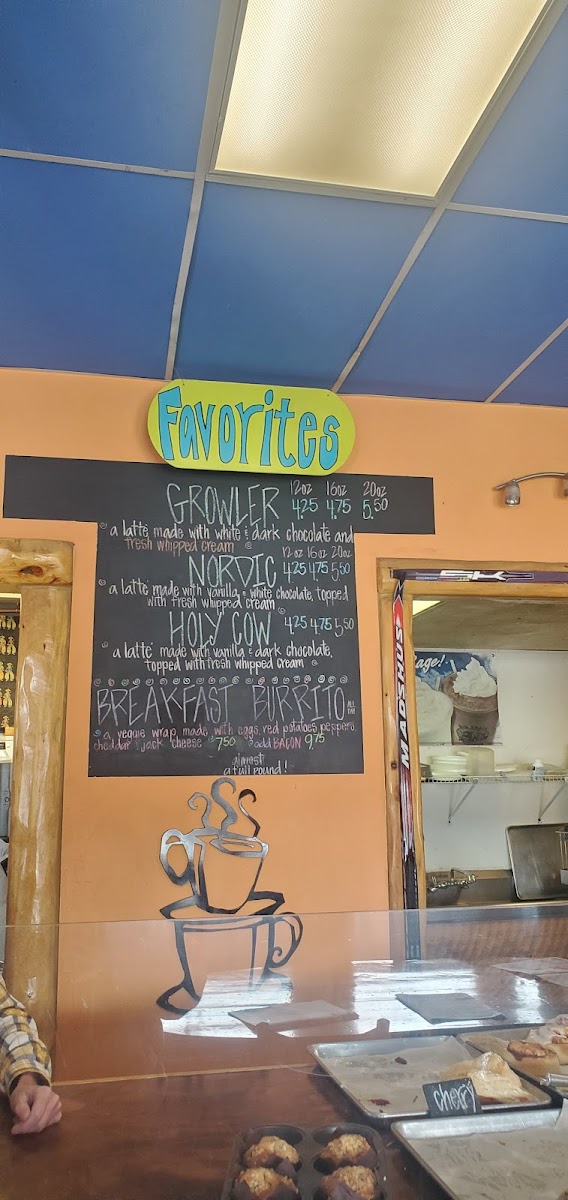 Favorites
12oz 16oz 20oz
GROWLER 4.25 4.75 5.50
a latté made with white & dark chocolate and
fresh whipped cream
12oz 16oz 20oz
NORDIC 4.25 4.75 5.50
a latté made with vanilla & white chocolate, topped
with fresh whipped cream
HOLY COW 4.25 4.75 5.50
a latté made with vanilla & dark chocolate,
topped with fresh whipped cream
BREAKFAST BURRITO
a veggie wrap made with eggs, red potatoes, peppers,
cheddar & jack cheese $7.50 add BACON 9.75
almost
a full pound!
MADSHUS
cherry